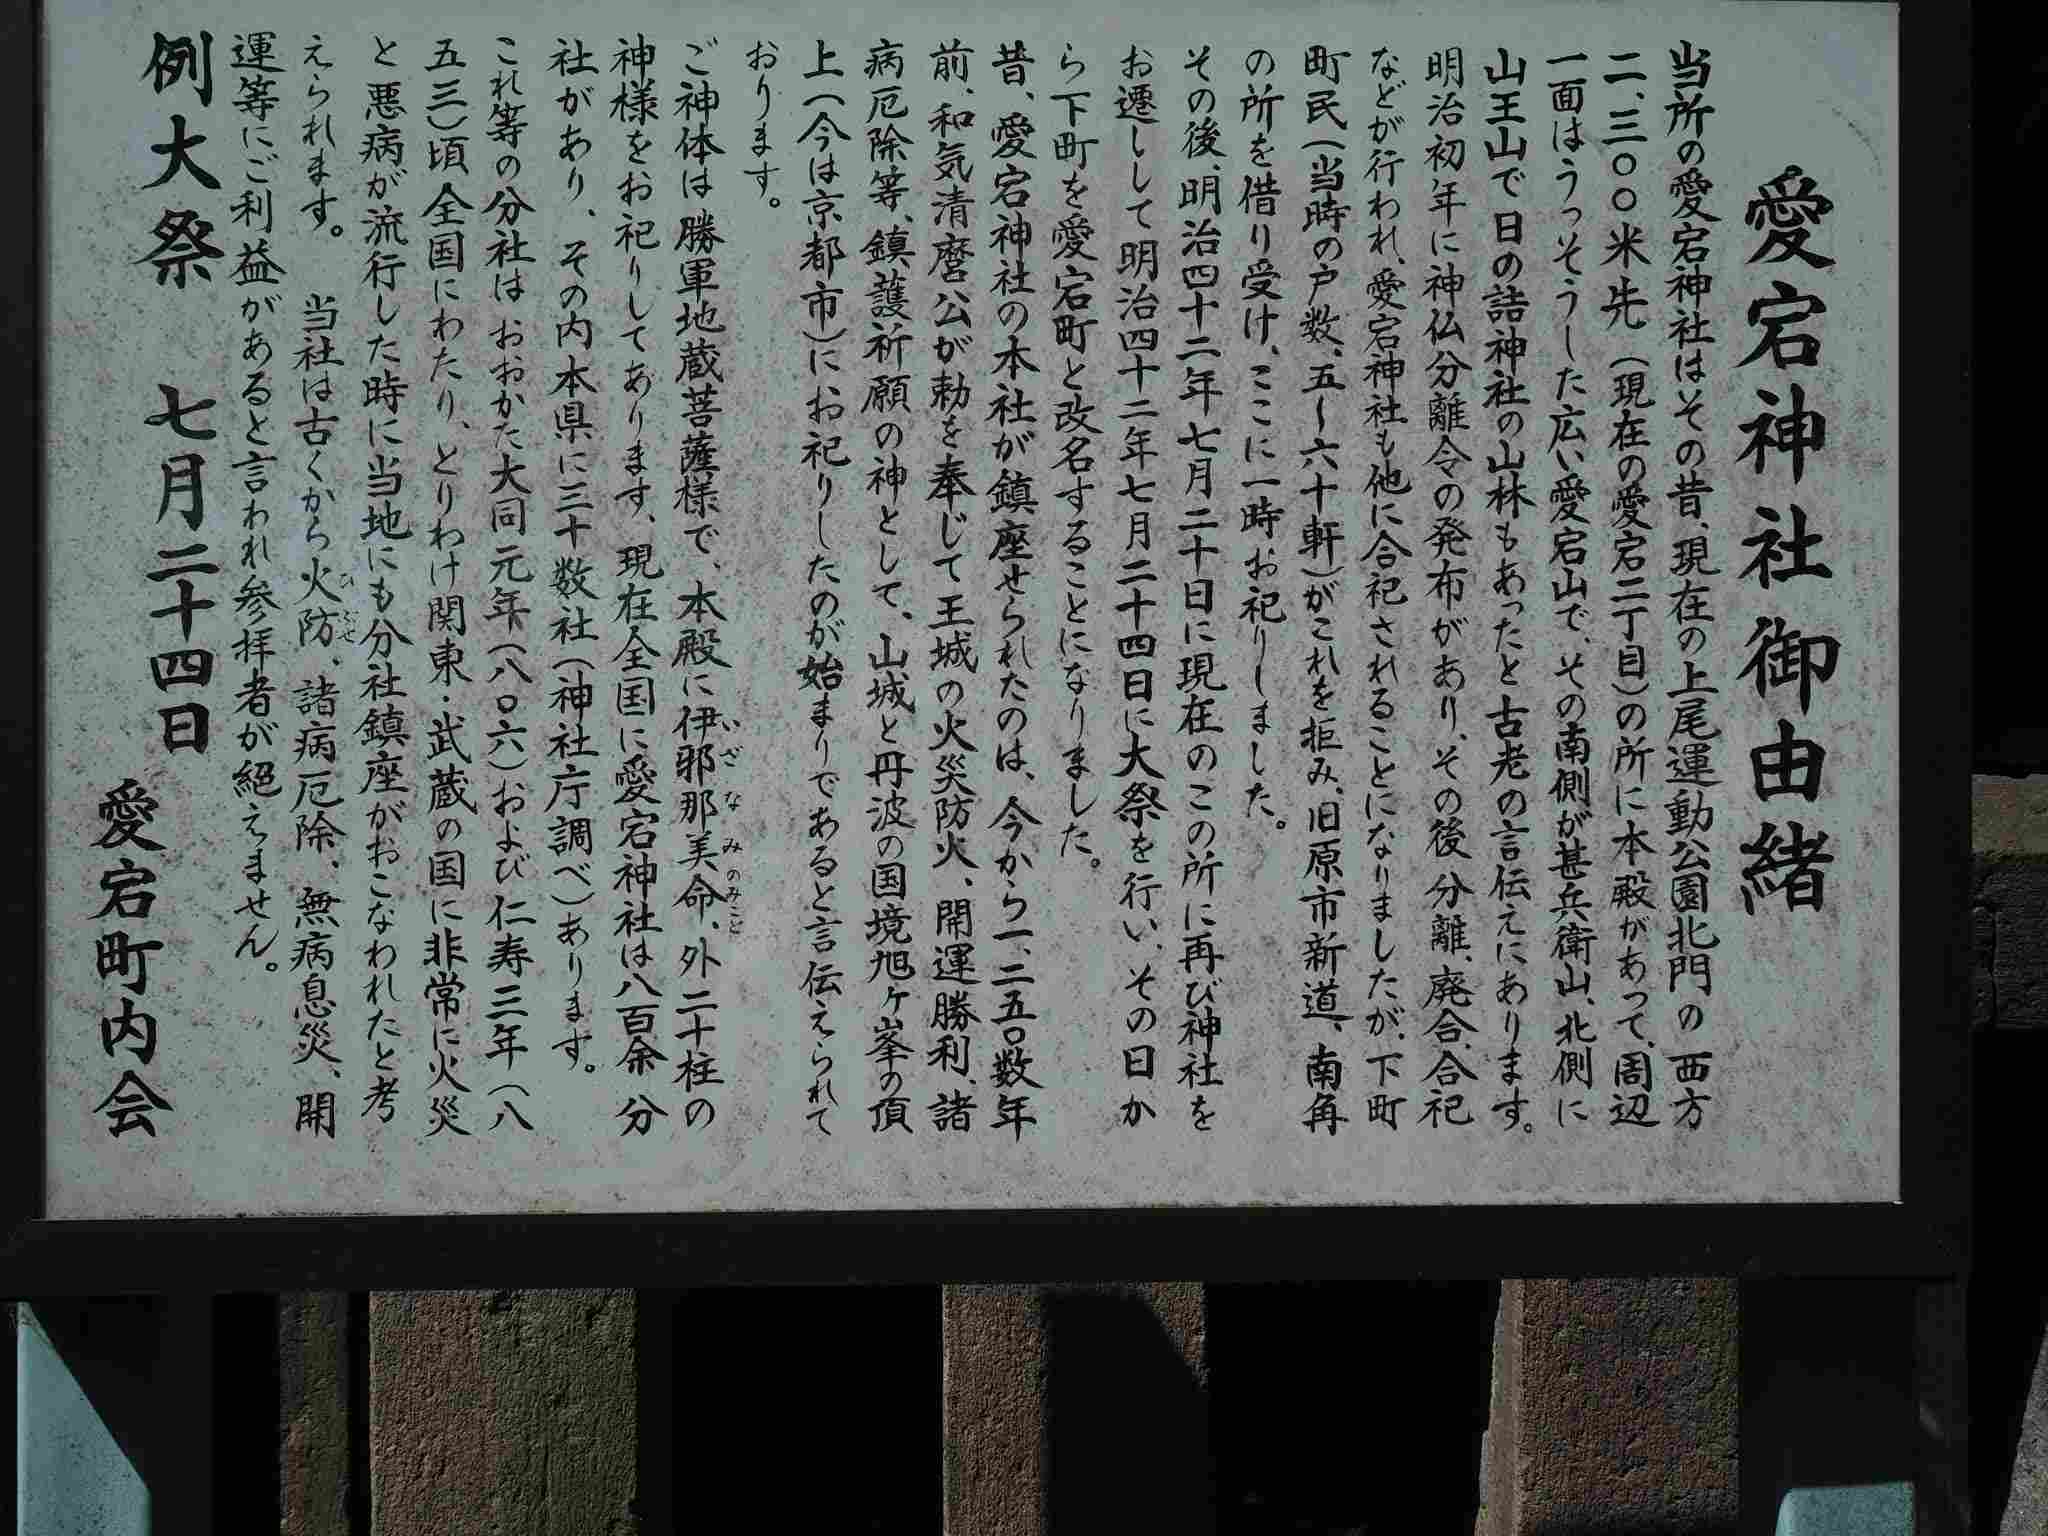 愛宕神社御由緒
当所の愛宕神社はその昔、現在の上尾運動公園北門の西方
二、三〇〇米先(現在の愛宕二丁目)の所に本殿があって、周辺
一面はうっそうした広い愛宕山で、その南側が甚兵衛山、北側に
山王山で日の詰神社の山林もあったと古老の言伝えにあります。
明治初年に神仏分離令の発布があり、その後分離、廃合、合祀
などが行われ、愛宕神社も他に合祀されることになりましたが、下町
町民(当時の戸数、五〜六十軒)がこれを拒み、旧原市新道、南角
の所を借り受け、ここに一時お祀りしました。
その後、明治四十二年七月二十日に現在のこの所に再び神社を
お遷しして明治四十二年七月二十四日に大祭を行い、その日か
ら下町を愛宕町と改名することになりました。
昔、愛宕神社の本社が鎮座せられたのは、今から一、二五〇数年
前、和気清麿公が勅を奉じて王城の火災防火、開運勝利、諸
病厄除等、鎮護祈願の神として、山城と丹波の国境旭ヶ峯の頂
上(今は京都市)にお祀りしたのが始まりであると言伝えられて
おります。
ご神体は勝軍地蔵菩薩様で、本殿に伊邪那美命、外二十柱の
いざなみのみこと
神様をお祀りしてあります、現在全国に愛宕神社は八百余分
社があり、その内本県に三十数社(神社庁調べ)あります。
これ等の分社はおおかた大同元年(八〇六)および仁寿三年(八
五三)頃全国にわたり、とりわけ関東・武蔵の国に非常に火災
と悪病が流行した時に当地にも分社鎮座がおこなわれたと考
えられます。 当社は古くから火防、諸病厄除、無病息災、開
ひぶせ
運等にご利益があると言われ参拝者が絶えません。
例大祭 七月二十四日
愛宕町内会